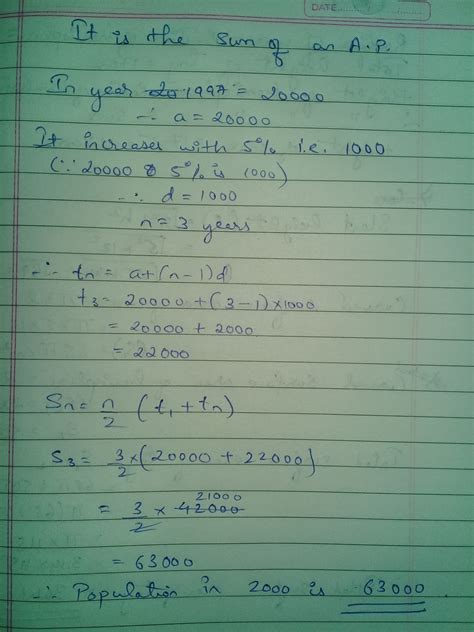 DATE
It is the sum of an A.P.
In year 1997 = 20000
∴ a = 20000
It increases with 5% i.e. 1000
(∵ 20000 5% is 1000)
∴ d = 1000
n = 3 years
∴ tn = a+(n-1)d
t3 = 20000 + (3-1)×1000
= 20000 + 2000
= 22000
Sn = n/2 (t1 + tn)
S3 = 3/2 × (20000 + 22000)
21000
= 3/2 × 42000
= 63000
∴ Population in 2000 is 63000